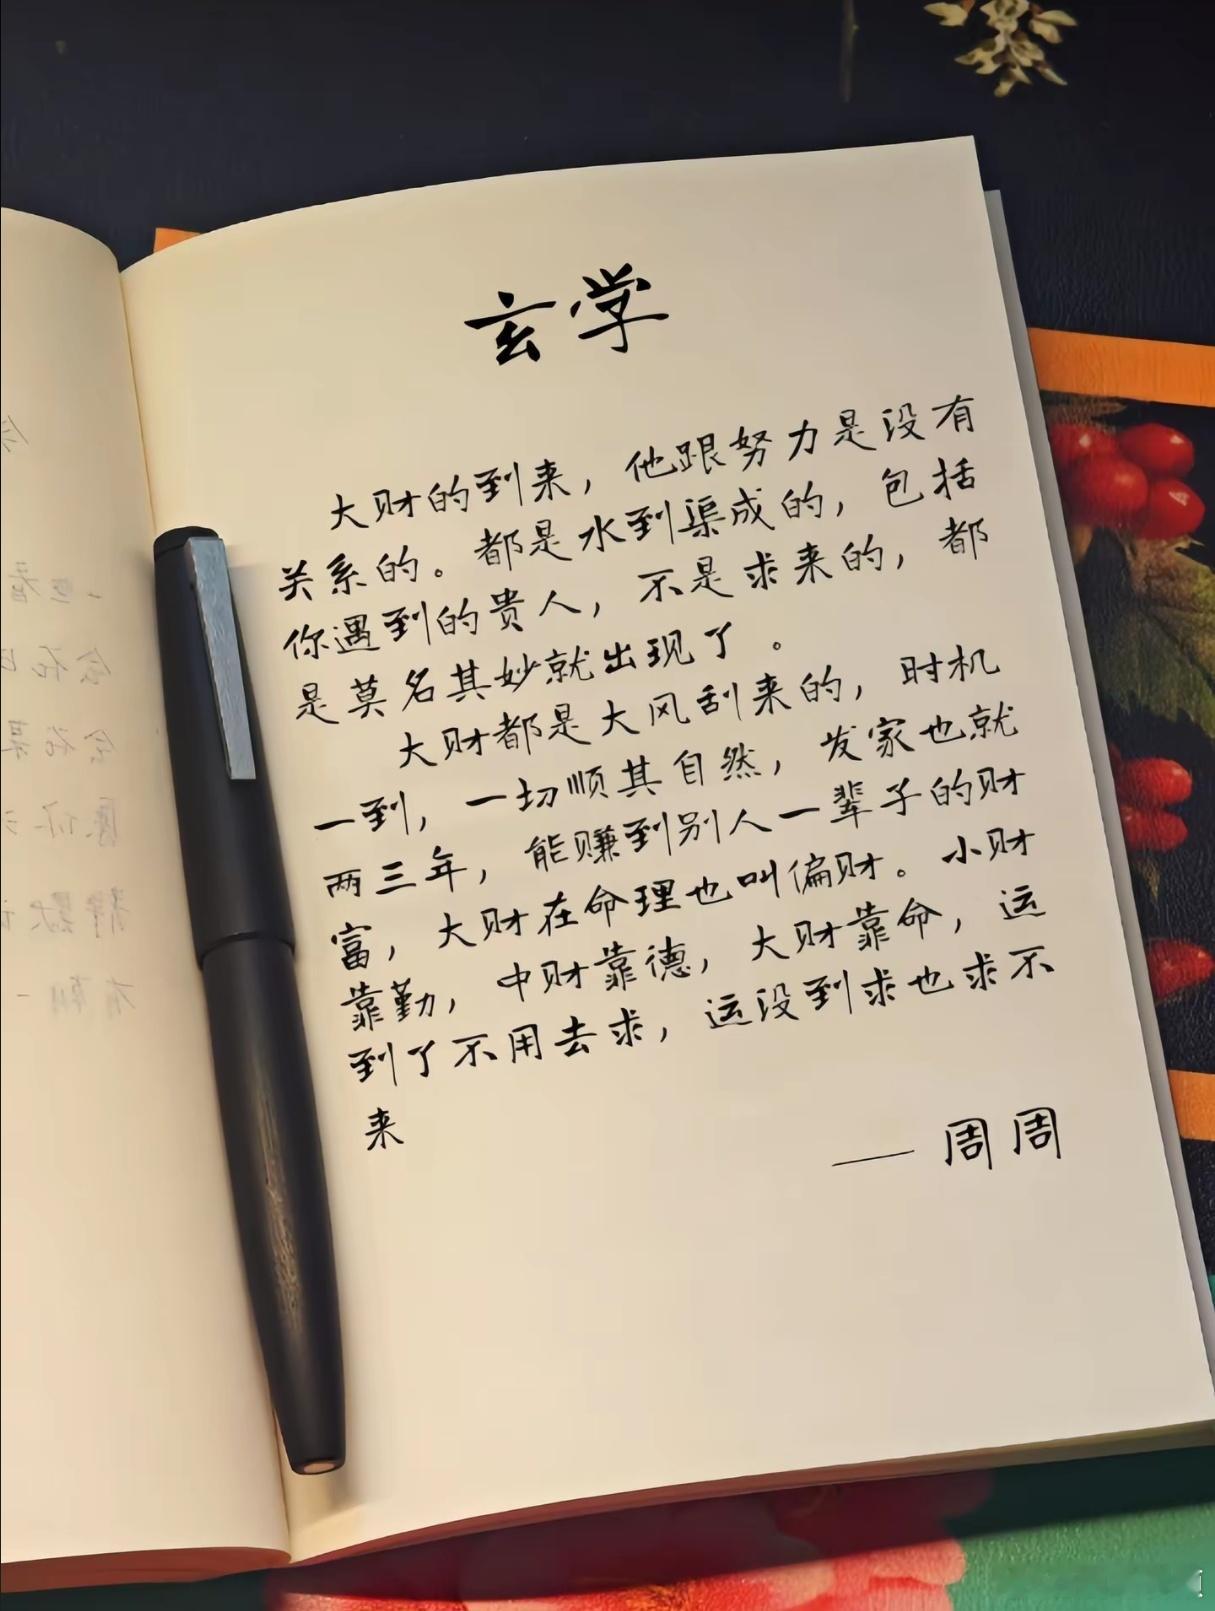 玄学
大财的到来，他跟努力是没有
关系的。都是水到渠成的，包括
你遇到的贵人，不是求来的，都
是莫名其妙就出现了。
大财都是大风刮来的，时机
一到，一切顺其自然，发家也就
两三年，能赚到别人一辈子的财
富，大财在命理也叫偏财。小财
靠勤，中财靠德，大财靠命，运
到了不用去求，运没到求也求不
来
——周周